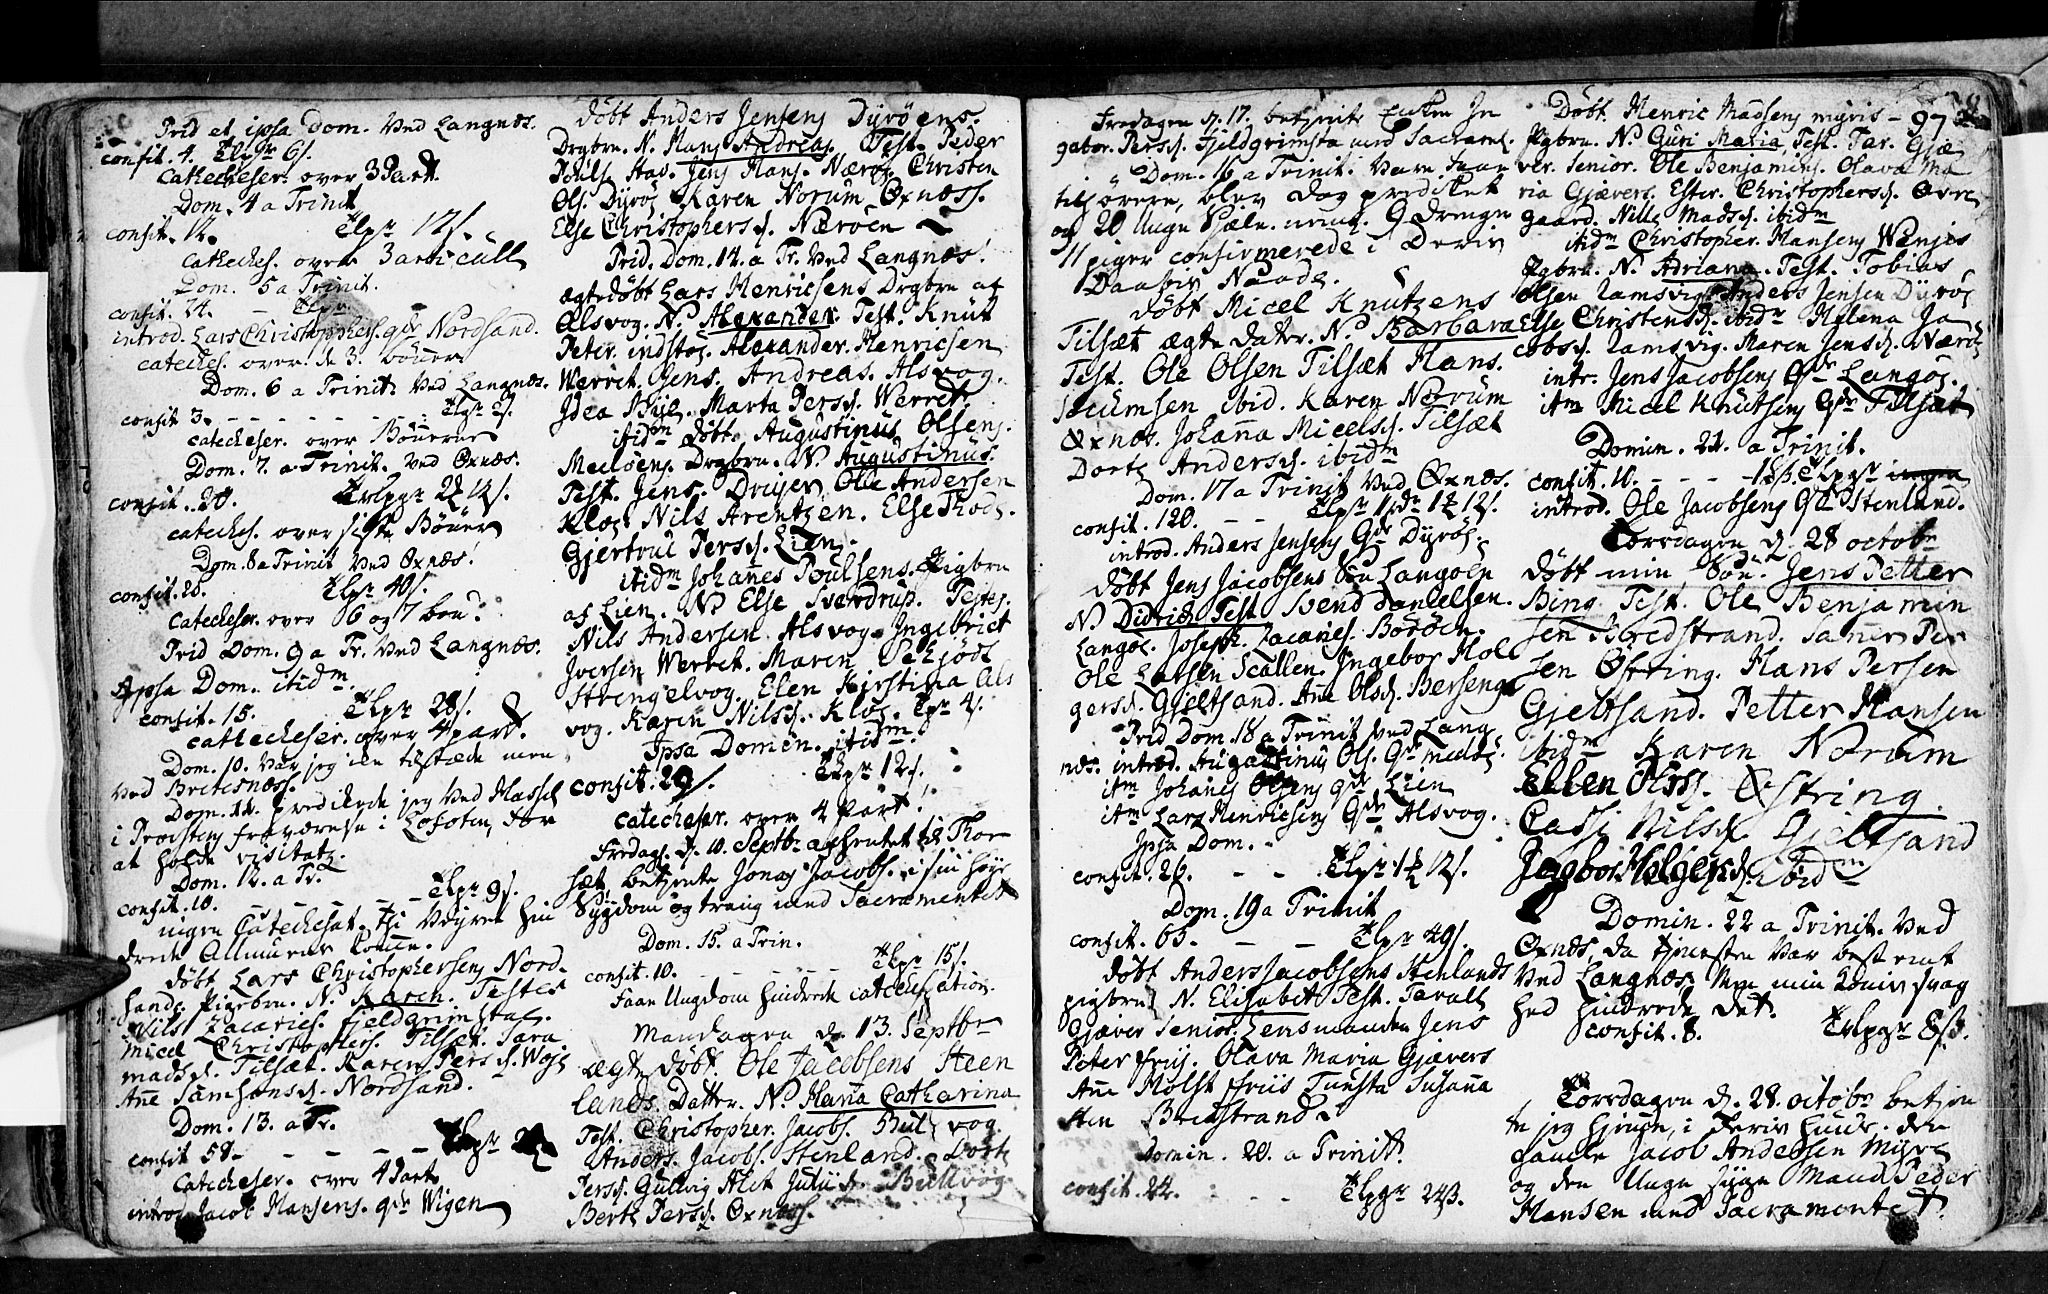 Prid et ipsa Dom. Ved Langnæs.
confit. 4. 6 s.
Catecheser. over 3 Part.
Dom. 4 a Trinit
confit. 12. 12 s.
catheches. over 3 articull
Dom. 5 a Trinit.
confit. 24.
introd. Lars Christophers. qde Nordsand.
cateches. over. de 3. bönner
Dom. 6 a Trinit. Ved Langnæs.
confit 3.
catecheser. over Bönnerne
Dom. 7. a Trinit. Ved Oxnæs.
confit. 20.
catheches. over siste Bönner
Dom. 8 a Trinit Ved Oxnæs.
confit. 20. 40 s.
Catecheser. over 6 og 7 bön.
Prid Dom. 9 a Tr. Ved Langnæs.
Ipsa Dom. itidm.
confit. 15. 28 s.
catecheser. over 4 part.
Dom. 10. Var jeg ei tilstæde men
Ved Bretesnæs.
Dom. 11. Predikede jeg Ved Hassel
i Provstens fraværelse i Lofoten, for
at holde visitatz.
Dom. 12. a Tr.
confit. 10. 9 s.
ingen Catechesat. thi Veyret hin
drede Allmuens komme.
döbt Lars Christophersens Nord
sands Pigebrn. N. Karen. Testes
Nils Zacaries. Fieldgrimstal.
Micel Christophers. Tilsæt. Sara
Madsd. Tilsæt. Karen Persd. Woje
Ane Samsonsd. Nordsand.
Dom. 13. a Tr.
confit 59.
Catecheser. over 4 Part.
introd Jacob Hansens. qde Wigen
döbt Anders Jensens Dyröens.
Drgbrn. N. Hans Andreas. Test. Peder
Povils. Stav. Jens Hans. Næröe. Christen
Ols. Dyröe Karen Norum Oxnæss.
Else Christophersd. Næröen
Prid. Dom. 14. a Tr. Ved Langnæs.
ægte döbt Lars Henricsens Drgbrn af
Alsvog. N. Alexander. Test. Knut
Peter. indstøe. Alexander. Henricsen
Werret. Jens. Andreas. Alsvog.
Idea Marta Persd. Werret.
itidm döbt. Augustinus Olsens.
Meelöens Drgbrn. N. Augustinus.
Test. Jens. Dreyer, Olle Andersen
Kloe Nils Arentzen. Else Thod.
Giertrul Persd. Lien.
itidm Johanes Poulsens. Pigbrn
af Lien. N. Else Sverdrup. Testes.
Nils Andersen Alsvog. Ingebrict
Iversen Werret. Maren
Strengelvog. Elen Kirstina Als
vog. Karen Nilsd. Kloe. 4 s.
Ipsa Domin. itidm.
confit. 29. 12 s.
catecheser. over 4 Part.
Fredags. d. 10. Septbr afhentet til Thor
sæt, betjente Jonas Jacobs. i sin höye
Sygdom og trang med Sacramentet
Dom. 15. a Trin.
confit. 10. 15 s.
Faae Ungdom hindrede catechisation.
Mandagen d. 13. Septbr
ægte döbt. Ole Jacobsens Steen
lands. Datter. N. Maria Catharina
Test. Christopher. Jacobs. Bulvog.
Anders. Jacobs. Stenland. Dorte
Persd. Gullvig Alet Juliid. Bullvog
Berte Persd. Oxnæs.
Fredagen d. 17. betjente Enken In
gabor. Persd. Fjeldgrimsta med Sacram.
Dom. 16 a Trinit. Varn faae
tilhörere, blev dog prediket
og 20 Unge Siele nemlig 9 drenge
11 piger confirmerede i Deris
Daabis Naade.
döbt Micel Knutzens
Tilsæt ægte datr. N. Barbara
Test. Ole Olsen Tilsæt Hans.
ibid. Karen Norum
Oxnæs. Johanna Micelsd. Tilsæt
Dorte Andersd. ibidm
Dom. 17 a Trinit Ved Oxnæs.
confit. 120.
introd. Anders Jensens Qde Dyröe.
döbt Jens Jacobsens Sön Langöen
N. Didrich Test. Svend Danielsen.
Langöe. Joseph. Zacaries. Boröen.
Ole Larsen Scallen. Ingebor Hol
gersd. Gjeltsand. Ane Olsd. Bersenge
Prid Dom. 18 a Trinit Ved Lang
næs. introd. Augustinus Ols. Qde Meelöe
itm Johanes Olsens qde Lien
itm Lars Henricsens Qde Alsvog.
Ipsa Dom.
confit. 26.
Dom. 19 a Trinit
confit. 65. 49 s.
döbt Anders Jacobsens Stenlands
pigbrn N. Elisabet Test. Tarall
Gjæver Senior. Lensmanden Jens
Peter friis. Olava Maria Gjævers
Ane Holst ffriis Tunsta Susanna
Sten Breistrand.
Domin. 20. a Trinit.
confit. 22.
Döbt. Henric Madsens myris 97
Pgbrn. N. Guri Maria. Test. Tar. Gjæ
ver. Senior. Ole Benjamins. Olava Ma
ria Gjævers. Ester. Christophersd. Ovre
gaard. Nille Madsd. ibidm
itidm Christopher. Hansens Wenjes
Pgbrn. N. Adriana. Test. Tobias
Olsen Ramsvig. Anders Jensen Dyröe
Else Christensd. ibidm Helena Ja
cobsd. Ramsvig. Maren Jensd. Næröe
intr. Jens Jacobsens Qde Langöe.
itm Micel Knutsens Qde Tilsæt
Domin. 21. a Trinit.
confit. 10.
introd. Ole Jacobsens Qde Stenland.
Torsdagen d. 28 octobr
döbt min Sön. Jens Petter
Bing. Test. Ole Benjamin
sen Bredstrand. Saner Per
sen Östring. Hans Persen
Gjeltsand. Petter Hansen
ibidm Karen Norum
Ellen Olss. Østring.
Cassi Nilsd. Gjeltsand
Ingbor Holgersd. ibidm
Domin. 22 a Trinit. Ved
Oxnæs, da tjenesten Var bestemt
Ved Langnæs Men min Konis svag
hed hindrede det.
Confit. 8.
Torsdagen d. 28. octobr betjen
te jeg hjemme, i Deris huus. den
Gamle Jacob Andersen Myre
og den Unge syge Mand Peder
Hansen med Sacramentet.